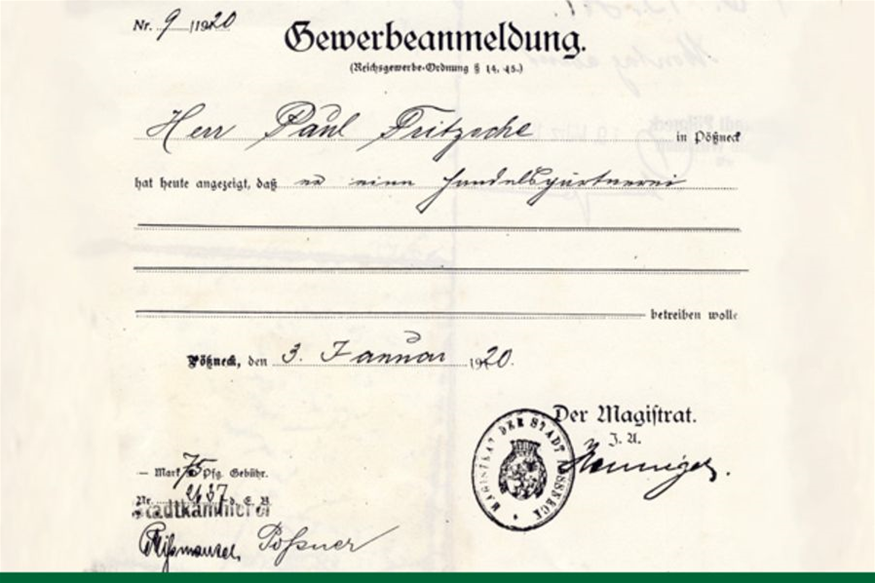 Nr. 9 /1920
Gewerbeanmeldung.
(Reichsgewerbe-Ordnung § 14, 15.)
Herr Paul Fritzsche in Pößneck
hat heute angezeigt, daß er eine Handelsgärtnerei
betreiben wolle
Pößneck, den 3. Januar 1920.
Der Magistrat.
J. A.
MAGISTRAT DER STADT POESSNECK
— Mark 75 Pfg. Gebühr.
Nr. 2657 d. E. B.
Stadtkämmerei
Poßner